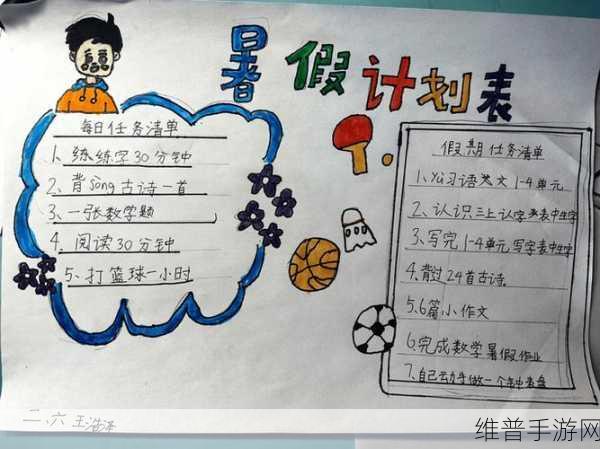 暑假计划表
每日任务清单
1、练练字30分钟
2、背sòng古诗一首
3、一张数学题
4、阅读30分钟
5、打篮球一小时
假期任务清单
1、yù习语英文1-4单元
2、认识三上认字表中生字
3、写完1-4单元写字表中生字
4、背过24首古诗。
5、6篇小作文
6、完成数学暑假作业
7、自己动手做一个钟表盘
二、六 王
维普手游网